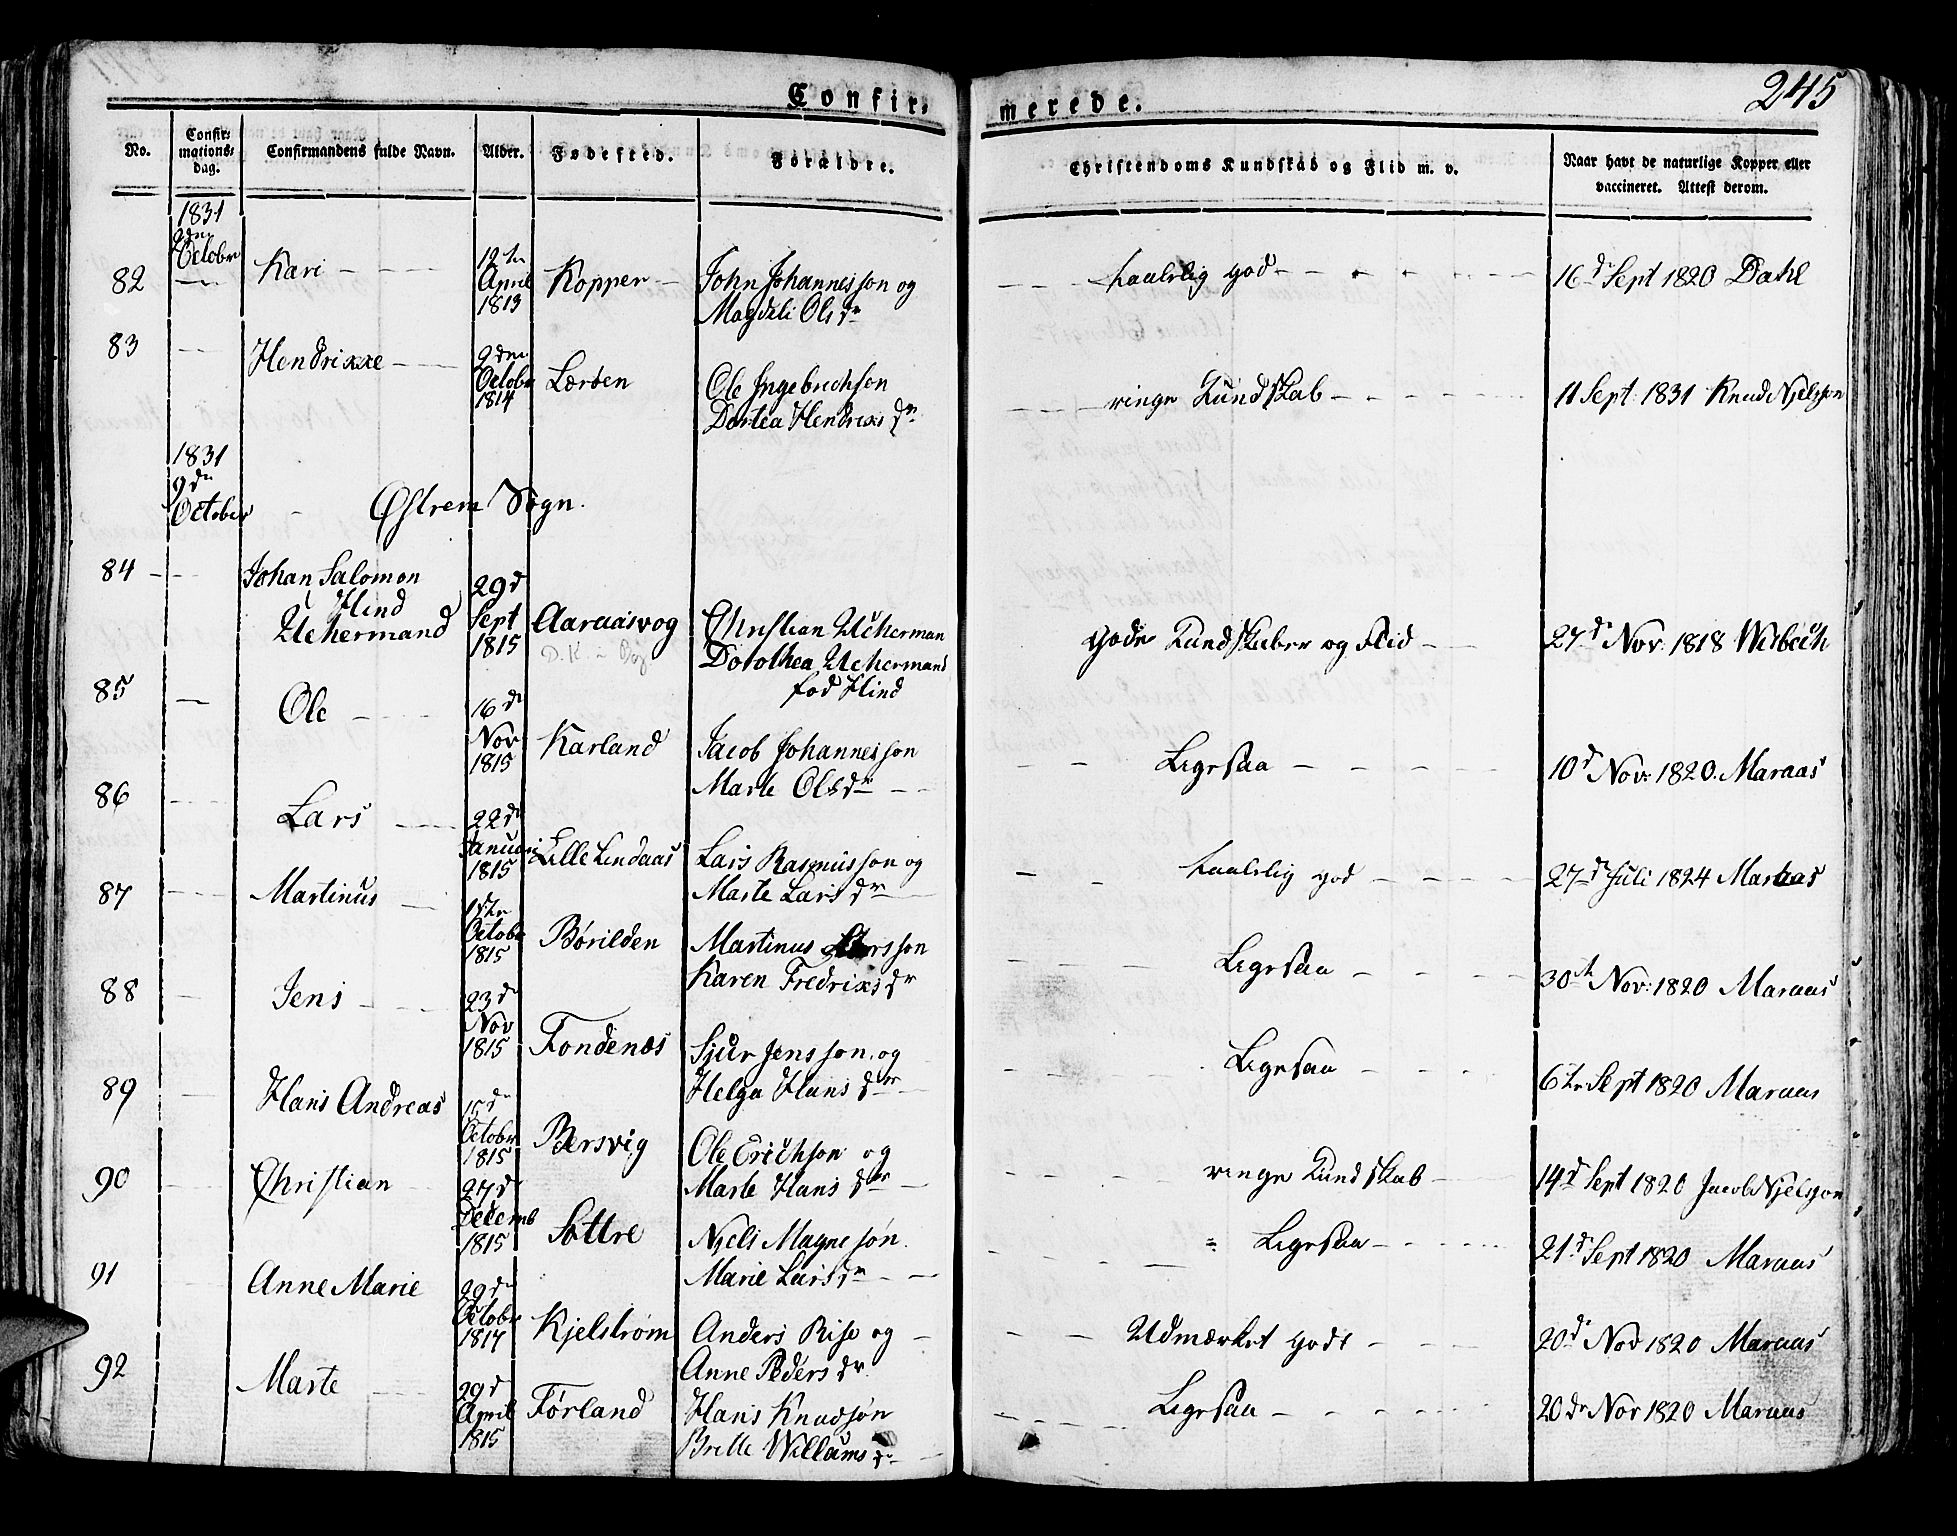 245
Confir- merede.
No.
Confir-
mations-
dag.
Confirmandens fulde Navn.
Alder.
Fødested.
Forældre.
Christendoms Kundskab og Flid m. v.
Naar havt de naturlige Kopper eller
vaccineret. Attest derom.
1831
2den
Octobr
82 — Kari — 12te April 1813 Kopper — John Johannesson og
Magdeli Olsdr
taalelig god — 16d Sept 1820 Dahl
83 — Hendrikke — 9den Octobr 1814 Lørøen Ole Ingebrechson
Dortea Hendrixsdr
ringe Kundskab — 11 Sept 1831 Knud Njelsson
1831
9dn
October
Østrem Sogn.
84 — Johan Salomon
Hind
Uchermand 29d Sept 1815 Aaraasvog Christian Ucherman
D. K. i Bog
Dorothea Uchermand
fød Hind
gode Kundskaber og Flid — 27d Nov: 1818 Wibech
85 — Ole — 16dn Nov 1815 Karland Jacob Johannesson
Marte Olsdr
Ligesaa — 10d Nov: 1820. Maraas
86 — Lars — 22dn Januari 1815 Lille Lindaas Lars Rasmusson og
Marte Larsdr
taalelig god — 27d Juli 1824 Maraas
87 — Martinus — Octobr 1815 Børilden Martinus Larsson
Karen Fredrixsdr
Ligesaa — 30th Nov: 1820 Maraas
88 — Jens — 23d Nov 1815 Fondenæs Sjur Jensson og
Helga Hansdr
Ligesaa — 6te Sept 1820 Maraas
89 — Hans Andreas 15dn Octobr 1815 Bersvig Ole Erichson og
Marte Hansdr
ringe Kundskab — 14d Sept 1820 Jacob Njelsson
90 — Christian 27d Decemb 1815 Søttre Njels Magneson.
Marie Larsdr
Ligesaa — 21d Sept 1820 Maraas
91 — Anne Marie 29dn Octobr 1814 Kjelstrøm Anders Rise og
Anne Pedersdr
Udmærket godt — 20d Nov 1820 Maraas
92 — Marte — 29d April 1815 Førland Hans Knudsøn
Britte Willumsdr
Ligesaa — 20dn Nov 1820 Maraas